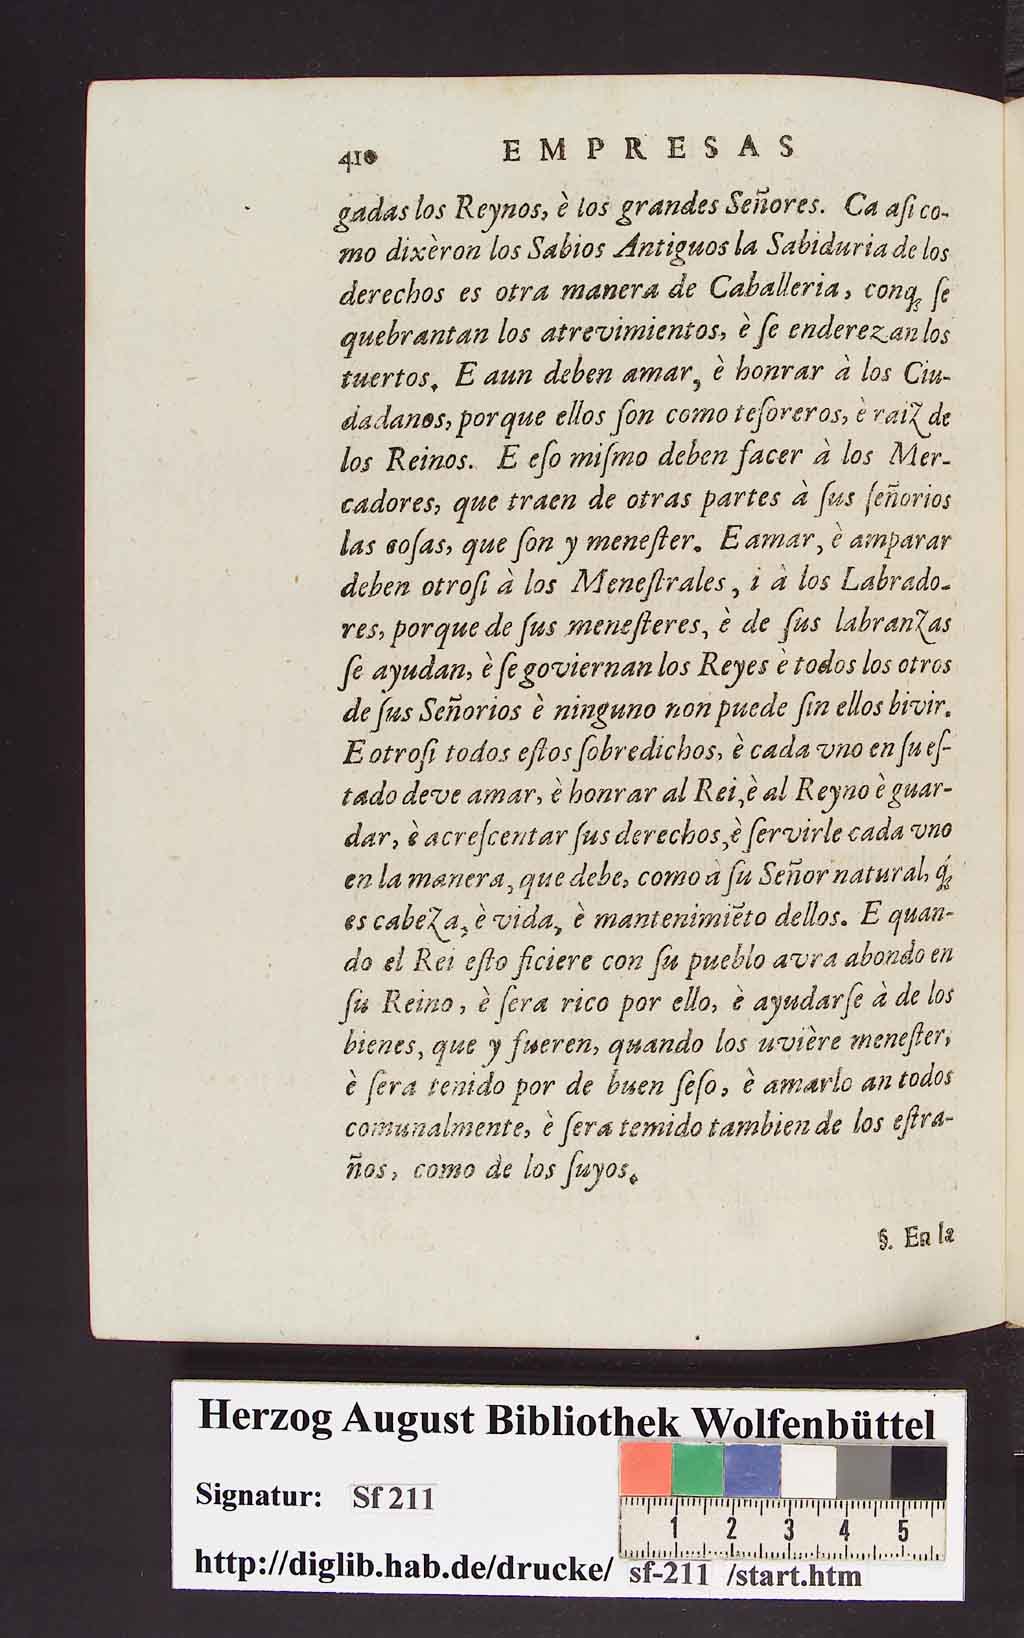 410 EMPRESAS
gadas los Reynos, è los grandes Señores. Ca aſi co-
mo dixèron los Sabios Antiguos la Sabiduria de los
derechos es otra manera de Caballeria, conq̃ ſe
quebrantan los atrevimientos, è ſe enderezan los
tuertos. E aun deben amar, è honrar à los Ciu-
dadanos, porque ellos ſon como teſoreros, è raiz de
los Reinos. E eſo miſmo deben facer à los Mer-
cadores, que traen de otras partes à ſus ſeñorios
las coſas, que ſon y meneſter. E amar, è amparar
deben otroſi à los Meneſtrales, i à los Labrado-
res, porque de ſus meneſteres, è de ſus labranzas
ſe ayudan, è ſe goviernan los Reyes è todos los otros
de ſus Señorios è ninguno non puede ſin ellos bivir.
E otroſi todos eſtos ſobredichos, è cada vno en ſu eſ-
tado deve amar, è honrar al Rei, è al Reyno è guar-
dar, è acreſcentar ſus derechos, è ſervirle cada vno
en la manera, que debe, como à ſu Señor natural, q̃
es cabeza, è vida, è mantenimiẽto dellos. E quan-
do el Rei eſto ficiere con ſu pueblo avra abondo en
ſu Reino, è ſera rico por ello, è ayudarſe à de los
bienes, que y fueren, quando los uvière meneſter,
è ſera tenido por de buen ſeſo, è amarlo an todos
comunalmente, è ſera temido tambien de los eſtra-
ños, como de los ſuyos.
§. En la
Herzog August Bibliothek Wolfenbüttel
Signatur: Sf 211
1 2 3 4 5
http://diglib.hab.de/drucke/ sf-211 /start.htm